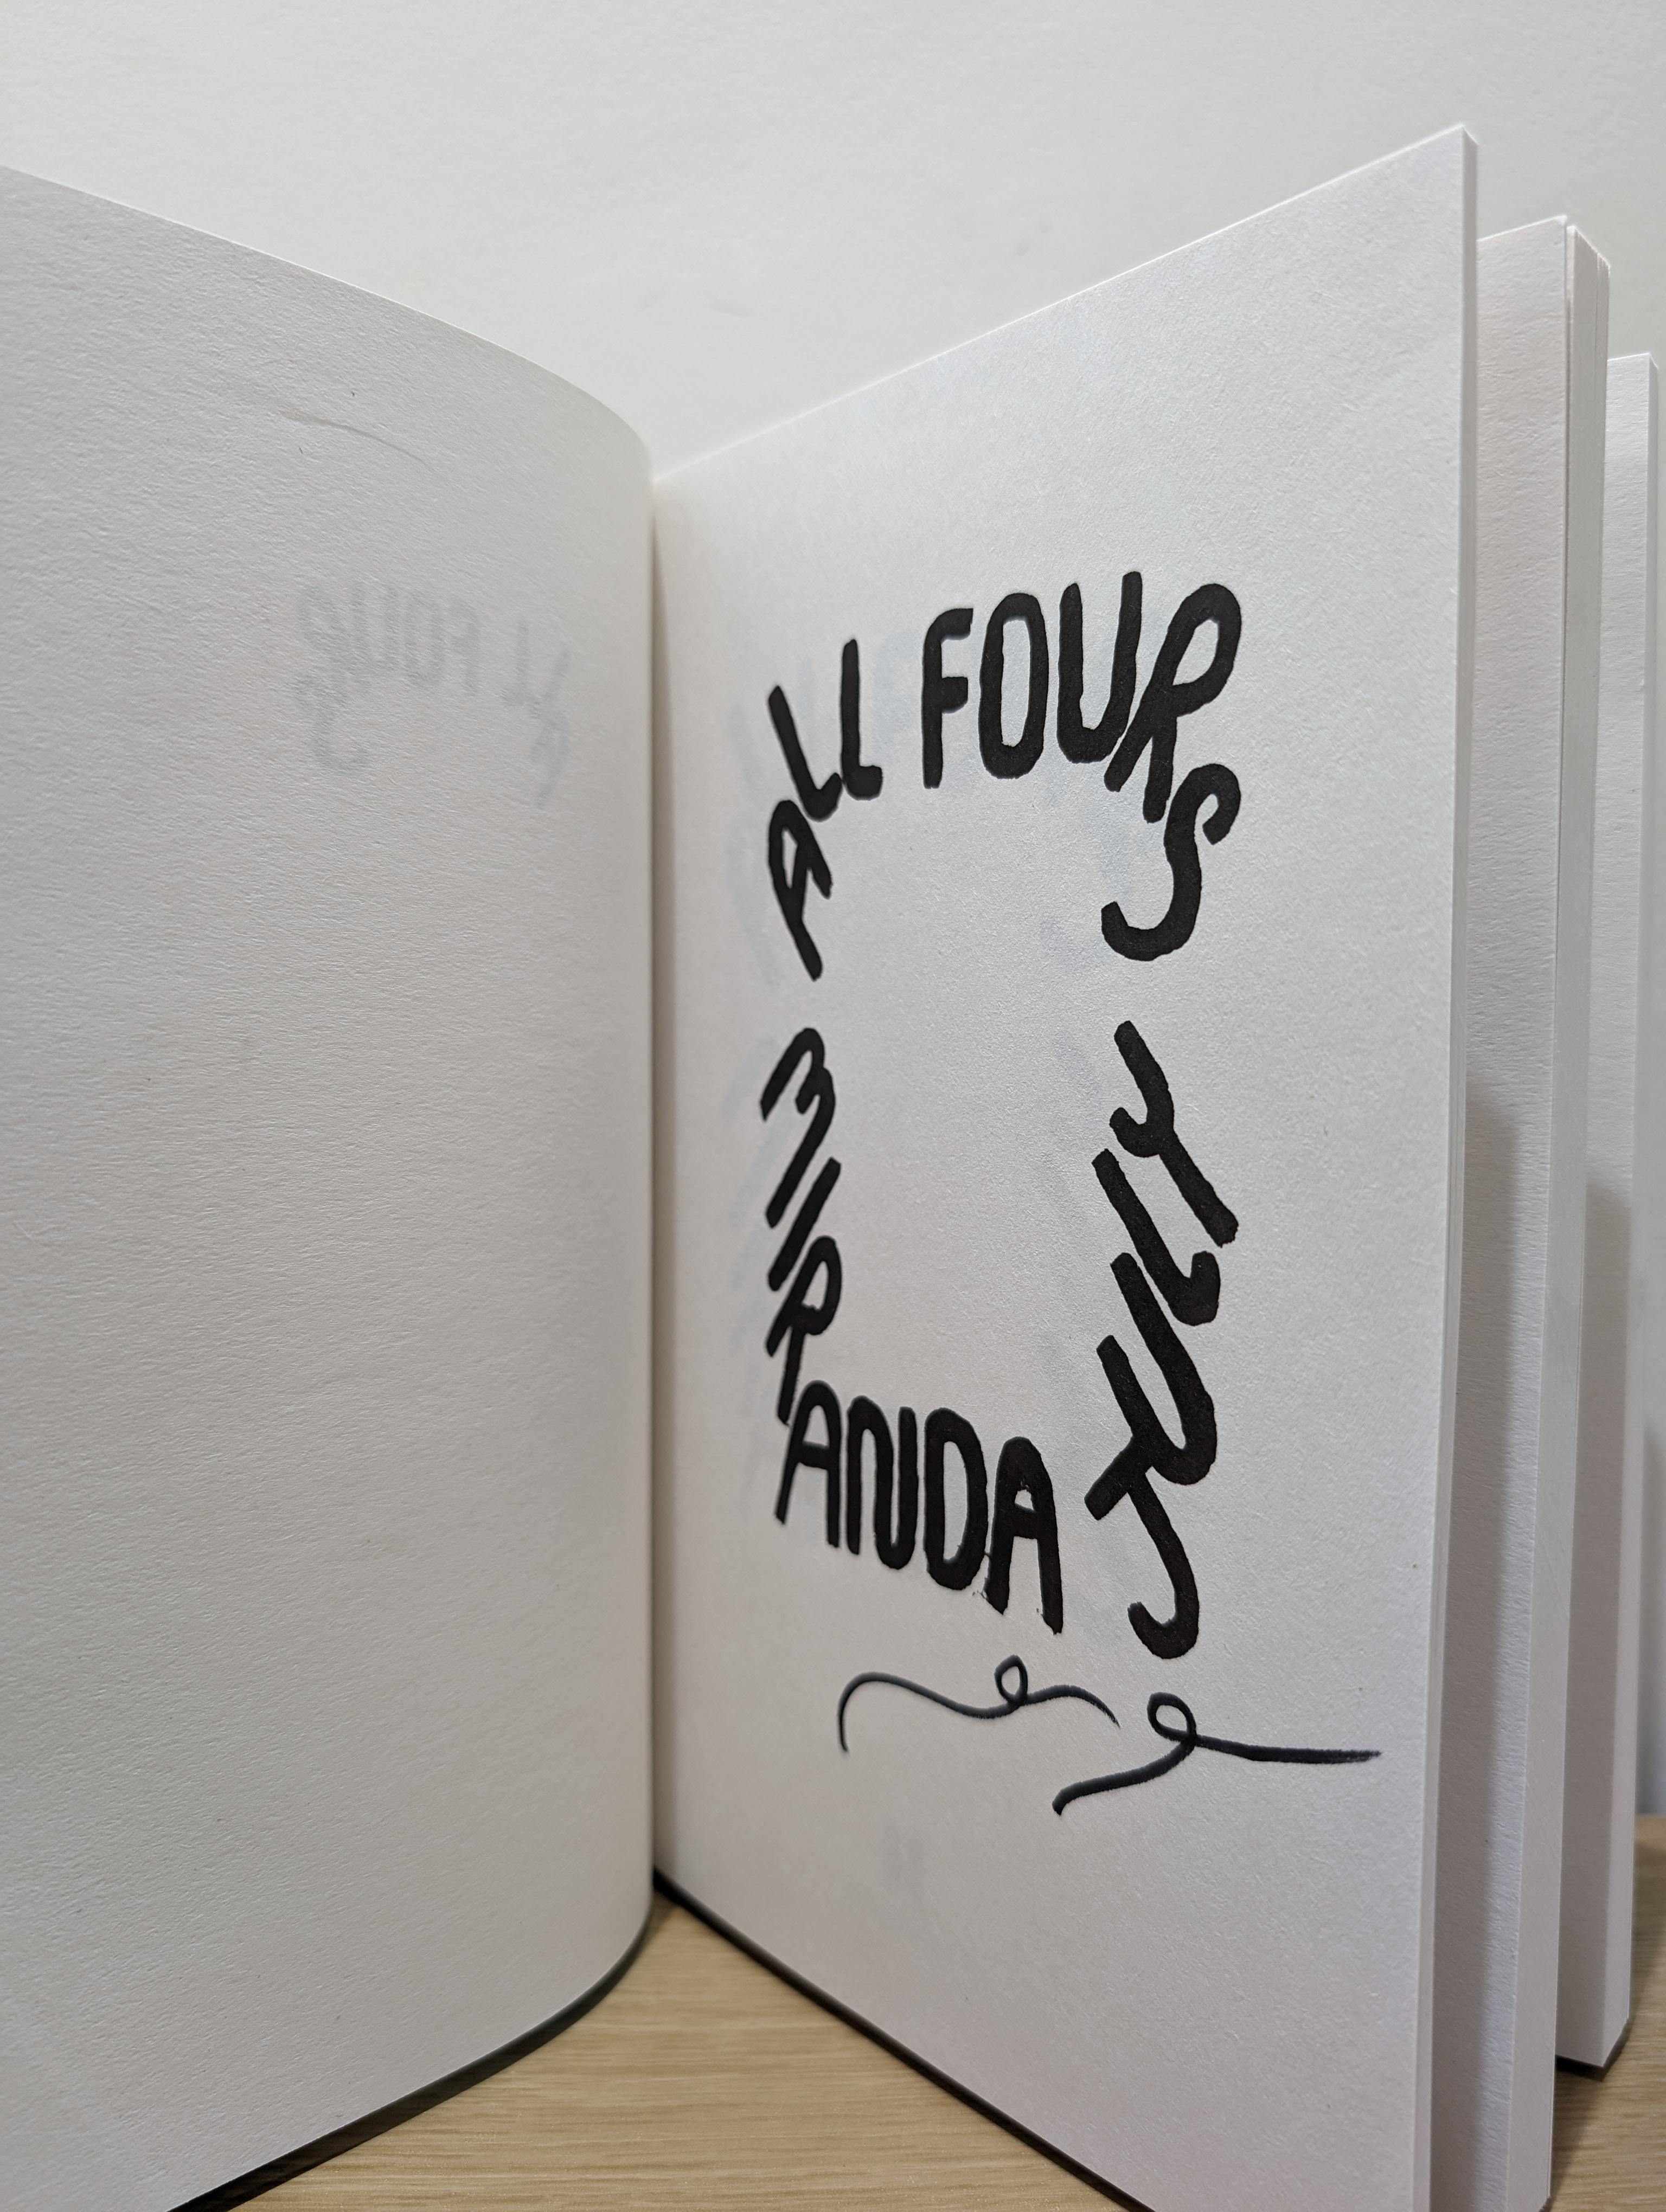 ALL FOURS
MIRANDA
JULY